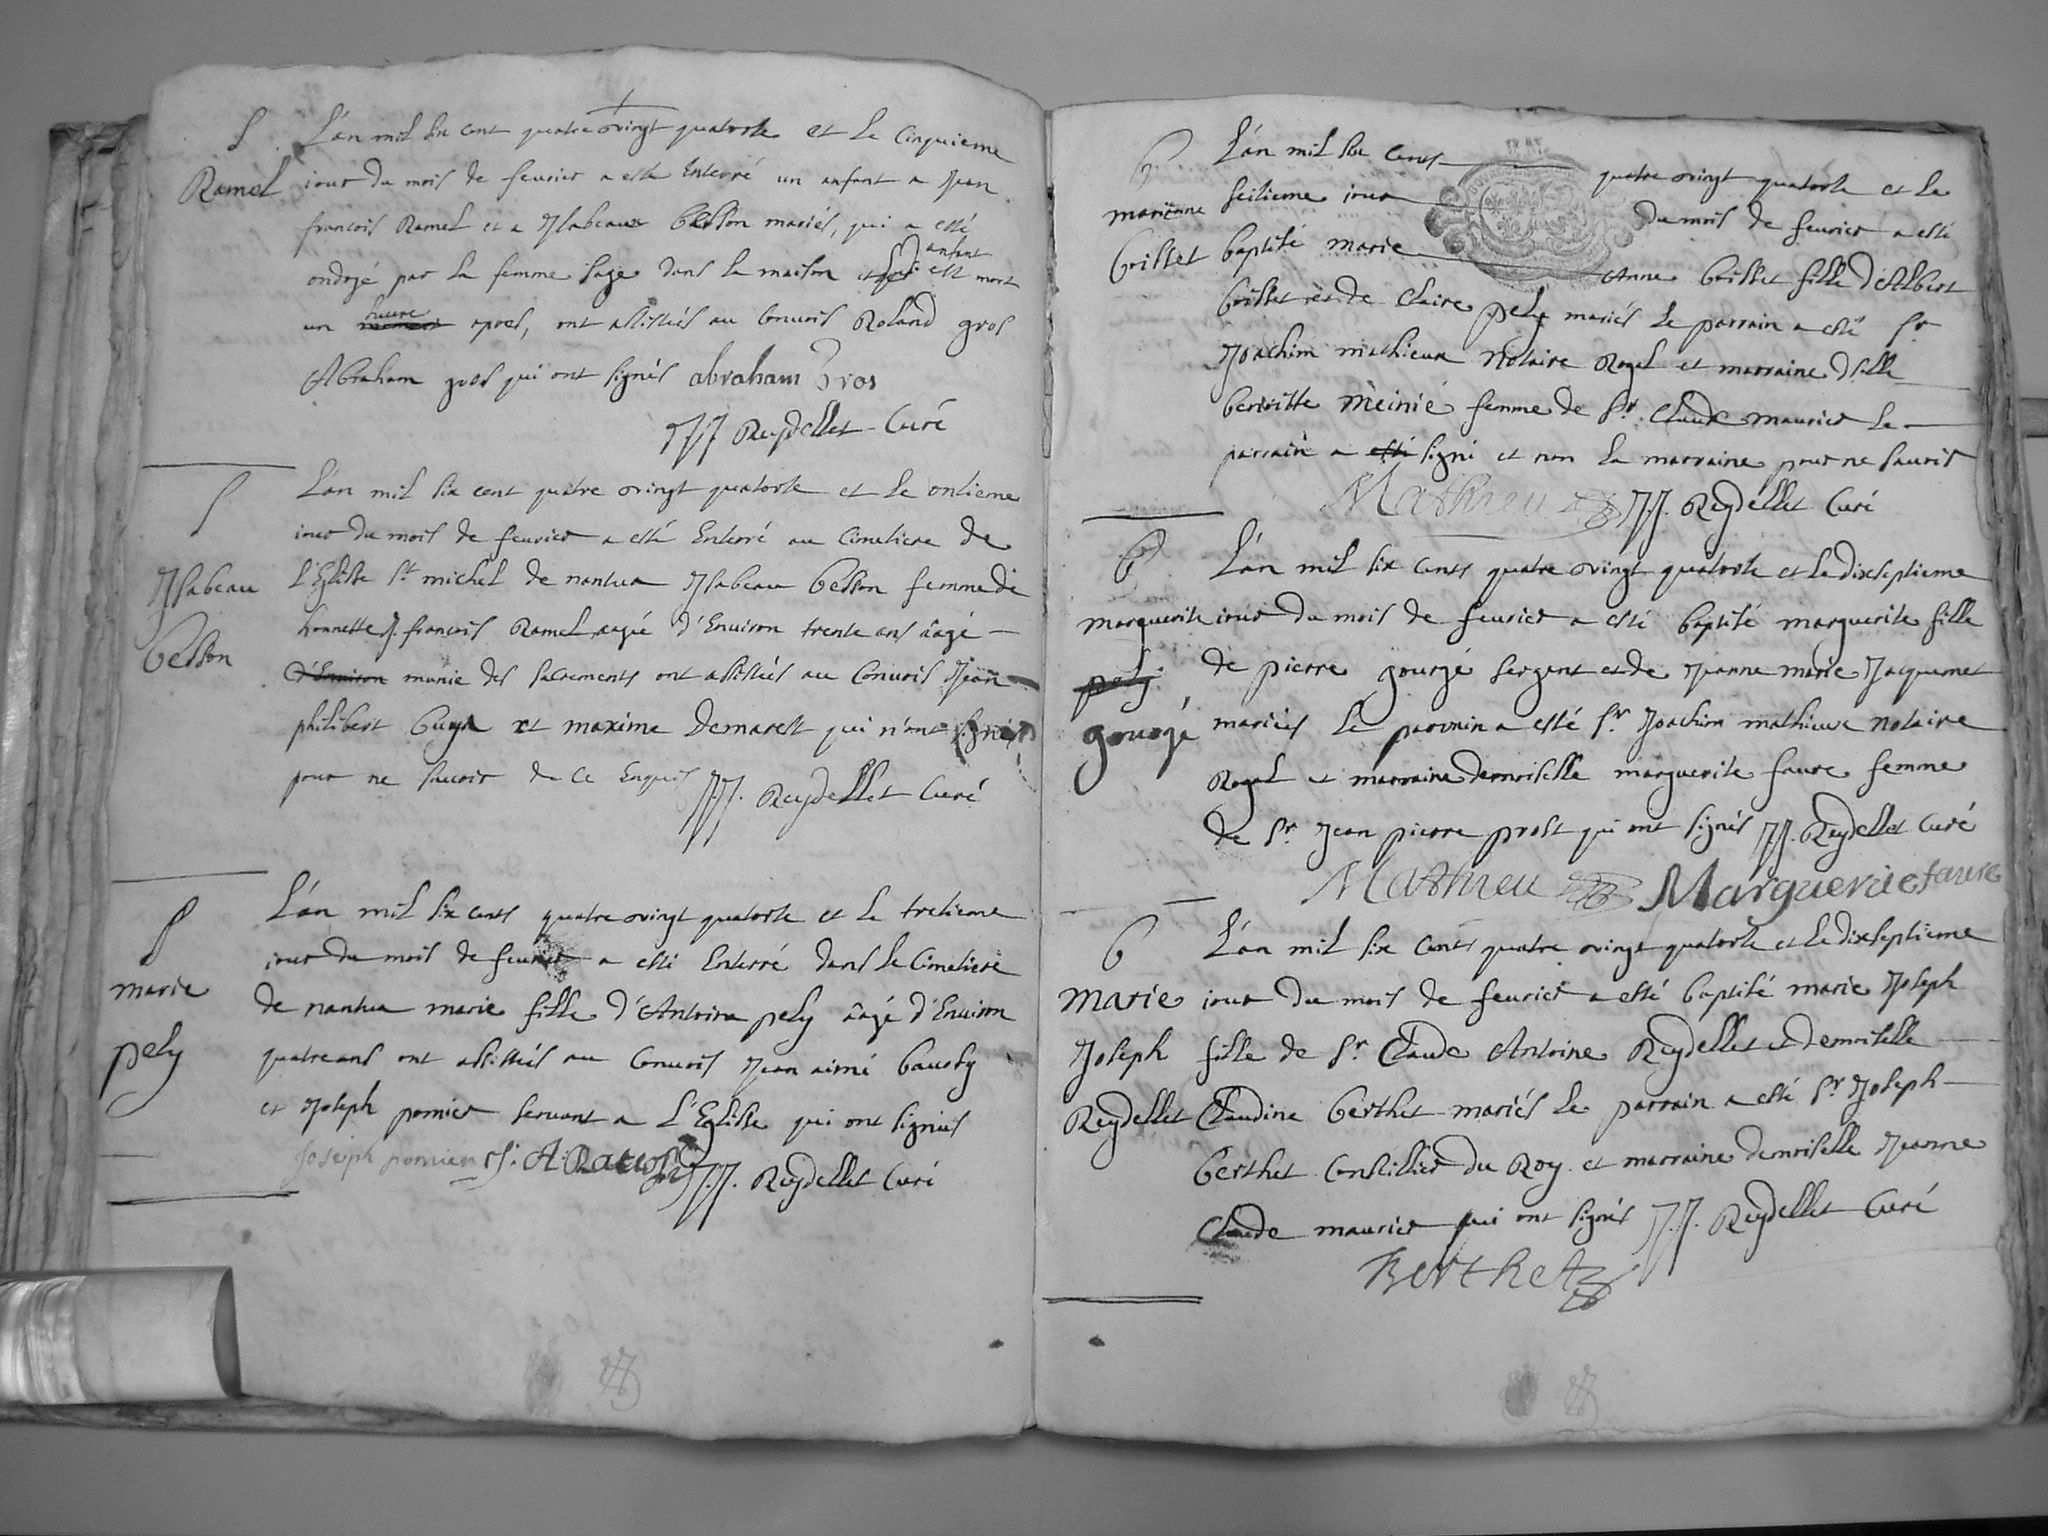 S
Ramel
L'an mil six cent quatre vingt quatorse et le cinquieme
iour du mois de feurier a esté Enterré un anfant a Jean
francois Ramel et a Isabeaux besson mariés, qui a esté
ondoyé par la femme sage dans la maison et led anfant est mort
un heure apres, ont assistés au Convois Roland gros
Abraham gros qui ont signés abraham gros
JJ Reydellet Curé
S
Isabeau
besson
L'an mil six cent quatre vingt quatorse et le onsieme
iour du mois de feurier a esté Enterré au Cimetiere de
l'Eglise St michel de nantua Isabeau besson femme de
honnette J. francois Ramel aagée d'Enuiron trente ans âagé
d'Enuiron munie des sacrements ont assistés au Convois Jean
philibert et maxime Demarest qui n'ont signés
pour ne scauoir de ce Enquis JJ. Reydellet Curé
S
marie
pely
L'an mil six cents quatre vingt quatorse et le tresieme
iour du mois de feurier a esté Enterré dans le Cimetiere
de nantua marie fille d'Antoine pely âagé d'Enuiron
quatre ans ont assistés au Convois Jean aimé
et Joseph pomier seruant a l'Eglise qui ont signés
Joseph pomier JJ. Reydellet Curé
B
marianne
brisset
L'an mil six cents quatre vingt quatorse et le
seisieme iour du mois de feurier a esté
baptisé marie Anne brisset fille d'Albert
brisset et de Claire pely mariés le parrain a esté Sr
Joachim mathieux Notaire Royal et marraine dslle
benoitte meinié femme de Sr. Claude maurier le
parrain a esté signé et non la marraine pour ne scauoir
Mathieu JJ. Reydellet Curé
B
marguerite
pely
gourgé
L'an mil six cents quatre vingt quatorse et le dixseptieme
iour du mois de feurier a esté baptisé marguerite fille
de pierre gourgé sergent et de Jeanne marie Jacquemet
mariés le parrain a esté Sr. Joachim mathieux notaire
Royal et marraine demoiselle marguerite faure femme
de Sr. Jean pierre prost qui ont signés JJ. Reydellet Curé
Mathieu Marguerite faure
B
marie
Joseph
Reydellet
L'an mil six cents quatre vingt quatorse et le dixseptieme
iour du mois de feurier a esté baptisé marie Joseph
fille de Sr. Claude Antoine Reydellet et demoiselle
Claudine berthet mariés le parrain a esté Sr Joseph
berthet Conseillier du Roy et marraine demoiselle Jeanne
Claude maurier qui ont signés J.J. Reydellet Curé
Berthet